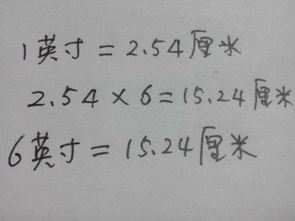 1英寸=2.54厘米
2.54×6=15.24厘米
6英寸=15.24厘米